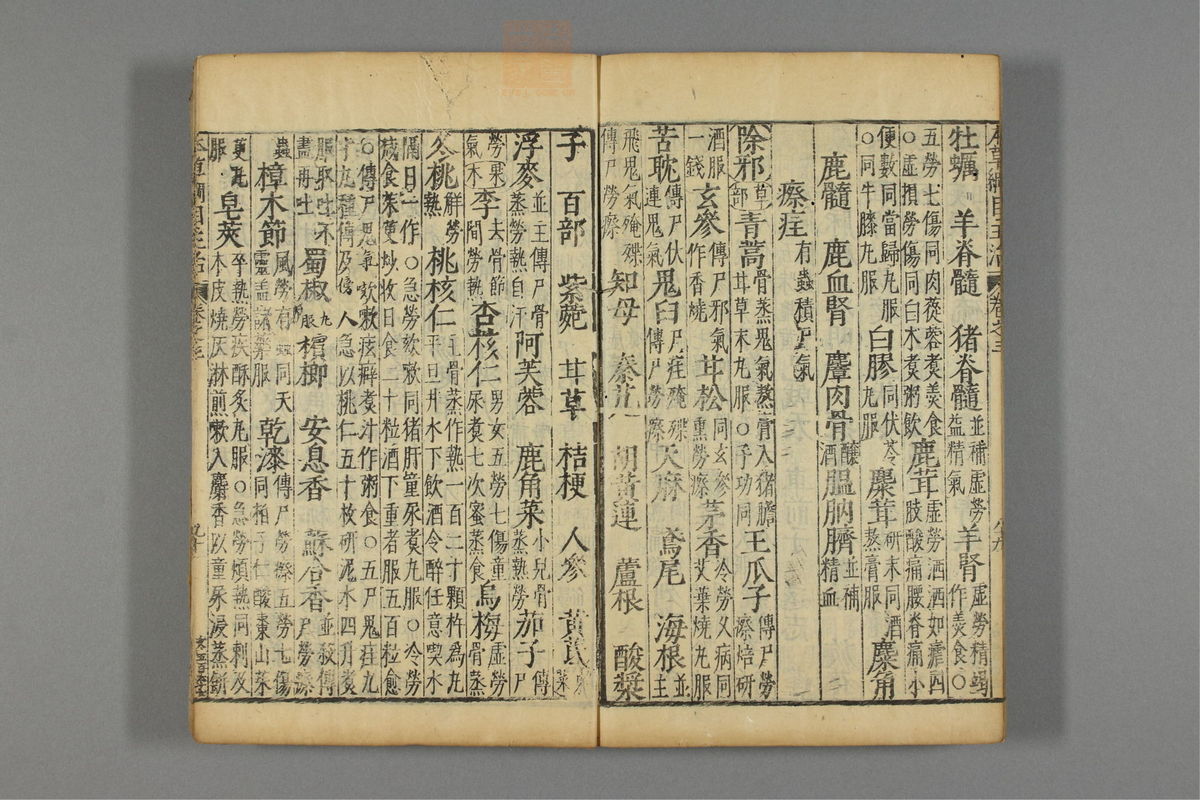 牡蠣 羊脊髓 豬脊髓並補虛勞益精氣 羊腎虛勞精竭作羹食○
五勞七傷同肉蓯蓉煮羹食○虛損勞傷同白朮煮粥飲 鹿茸虛勞洒洒如瘧四肢酸痛腰脊痛小
便數同當歸丸服○同牛膝丸服 白膠同伏苓丸服 麋茸研末同酒熬膏服 麋角
鹿髓 鹿血腎 麞肉骨釀酒 膃肭臍並補精血
瘵疰有蟲積尸氣
除邪草部青蒿骨蒸鬼氣熬膏入豬膽甘草末丸服○子功同 王瓜子傳尸勞瘵焙研
酒服一錢 玄參傳尸邪氣作香燒 甘松同玄參熏勞瘵 茅香冷勞久病同艾葉燒丸服
苦耽傳尸伏連鬼氣 鬼臼尸疰殗殜傳尸勞瘵 天麻 鳶尾 海根並主
飛鬼氣殗殜傳尸勞瘵 知母 秦艽 胡黃連 蘆根 酸漿
子 百部 紫菀 甘草 桔梗 人參 黃芪
浮麥並主傳尸骨蒸勞熱自汗 阿芙蓉 鹿角菜小兒骨蒸熱勞 茄子傳尸
勞氣 李去骨節間勞熱 杏核仁男女五勞七傷童尿煮七次蜜蒸食 烏梅虛勞骨蒸
冬桃解勞熱 桃核仁主骨蒸作熱一百二十顆杵為丸平旦井水下飲酒令醉任意喫水
隔日一作○急勞欬嗽同豬肝童尿煮丸服○冷勞減食茱萸炒收日食二十粒酒下重者服五百粒愈
○傳尸鬼氣欬嗽痃癖煮汁作粥食○五尸鬼疰九十九種傳及傍人急以桃仁五十枚研泥水四升煮
服取吐不盡再吐 蜀椒丸服 檳榔 安息香 蘇合香並殺傳尸勞瘵
蟲 樟木節風勞有蟲同天靈蓋諸藥服 乾漆傳尸勞瘵五勞七傷同柏子仁酸棗山茱
萸丸服 皂莢卒熱勞疾酥炙丸服○急勞煩熱同刺及木皮燒灰淋煎嗽入麝香以童尿浸蒸餅